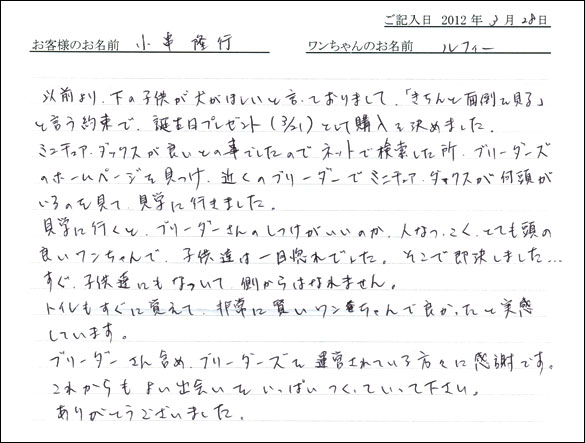 ご記入日 2012年3月28日
お客様のお名前 小串隆行 ワンちゃんのお名前 ルフィー
以前より、下の子供が犬がほしいと言っておりまして、「きちんと面倒を見る」
と言う約束で、誕生日プレゼント(3/21)として購入を決めました。
ミニチュア・ダックスが良いとの事でしたのでネットで検索した所、ブリーダーズ
のホームページを見つけ、近くのブリーダーでミニチュア・ダックスが何頭が
いるのを見て、見学に行きました。
見学に行くと、ブリーダーさんのしつけがいいのか、人なつっこく、とても頭の
良いワンちゃんで、子供達は一目惚れでした。そこで即決しました…
すぐ、子供達にもなついて、側からはなれません。
トイレもすぐに覚えて、非常に賢いワンちゃんで良かったと実感
しています。
ブリーダーさん含め、ブリーダーズを運営されている方々に感謝です。
これからもよい出会いをいっぱいつくっていって下さい。
ありがとうございました。